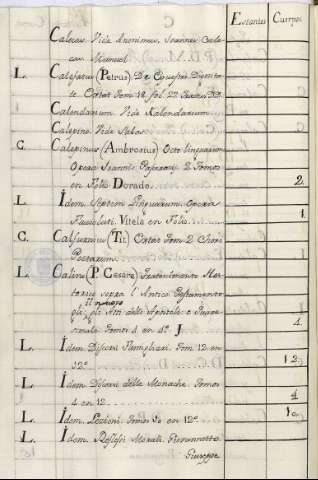 Estantes Cuerpos
Calecas. Vide Anonimus, Joannes Cale
cas Manuel.
L. Calefatus (Petrus). De Equestri Dignita
te. Extat Tom. 18. fol. 27
Calendarium Vide Kalendarium.
Calepino. Vide Salas.
C. Calepinus (Ambrosius) Octo linguarum
Opera Joannis Paserati. 2 Tomos
en Folio Dorado. 2.
L. Idem. Septem Linguarum. Opera
Facciolati. Vitela en Folio. 1.
C. Calfurnius (Tit.) Extat Tom. 2 Chori
Poetarum.
L. Calino (P. Cesare) Trattenimento His-
torico sopra l'Antico Testamento
Il nuovo
gli Atti delli Apostoli: e Quare-
simale. Tomos 4 en 4º. J. 4.
L. Idem. Discorsi Famigliari. Tom. 12 en
12º. 12.
L. Idem. Discorsi delle Monache. Tomos
4 en 12. 4
L. Idem. Lezioni. Tomos 10 en 12º. 10.
L. Idem. Reflessi Morali.
Giuseppe.